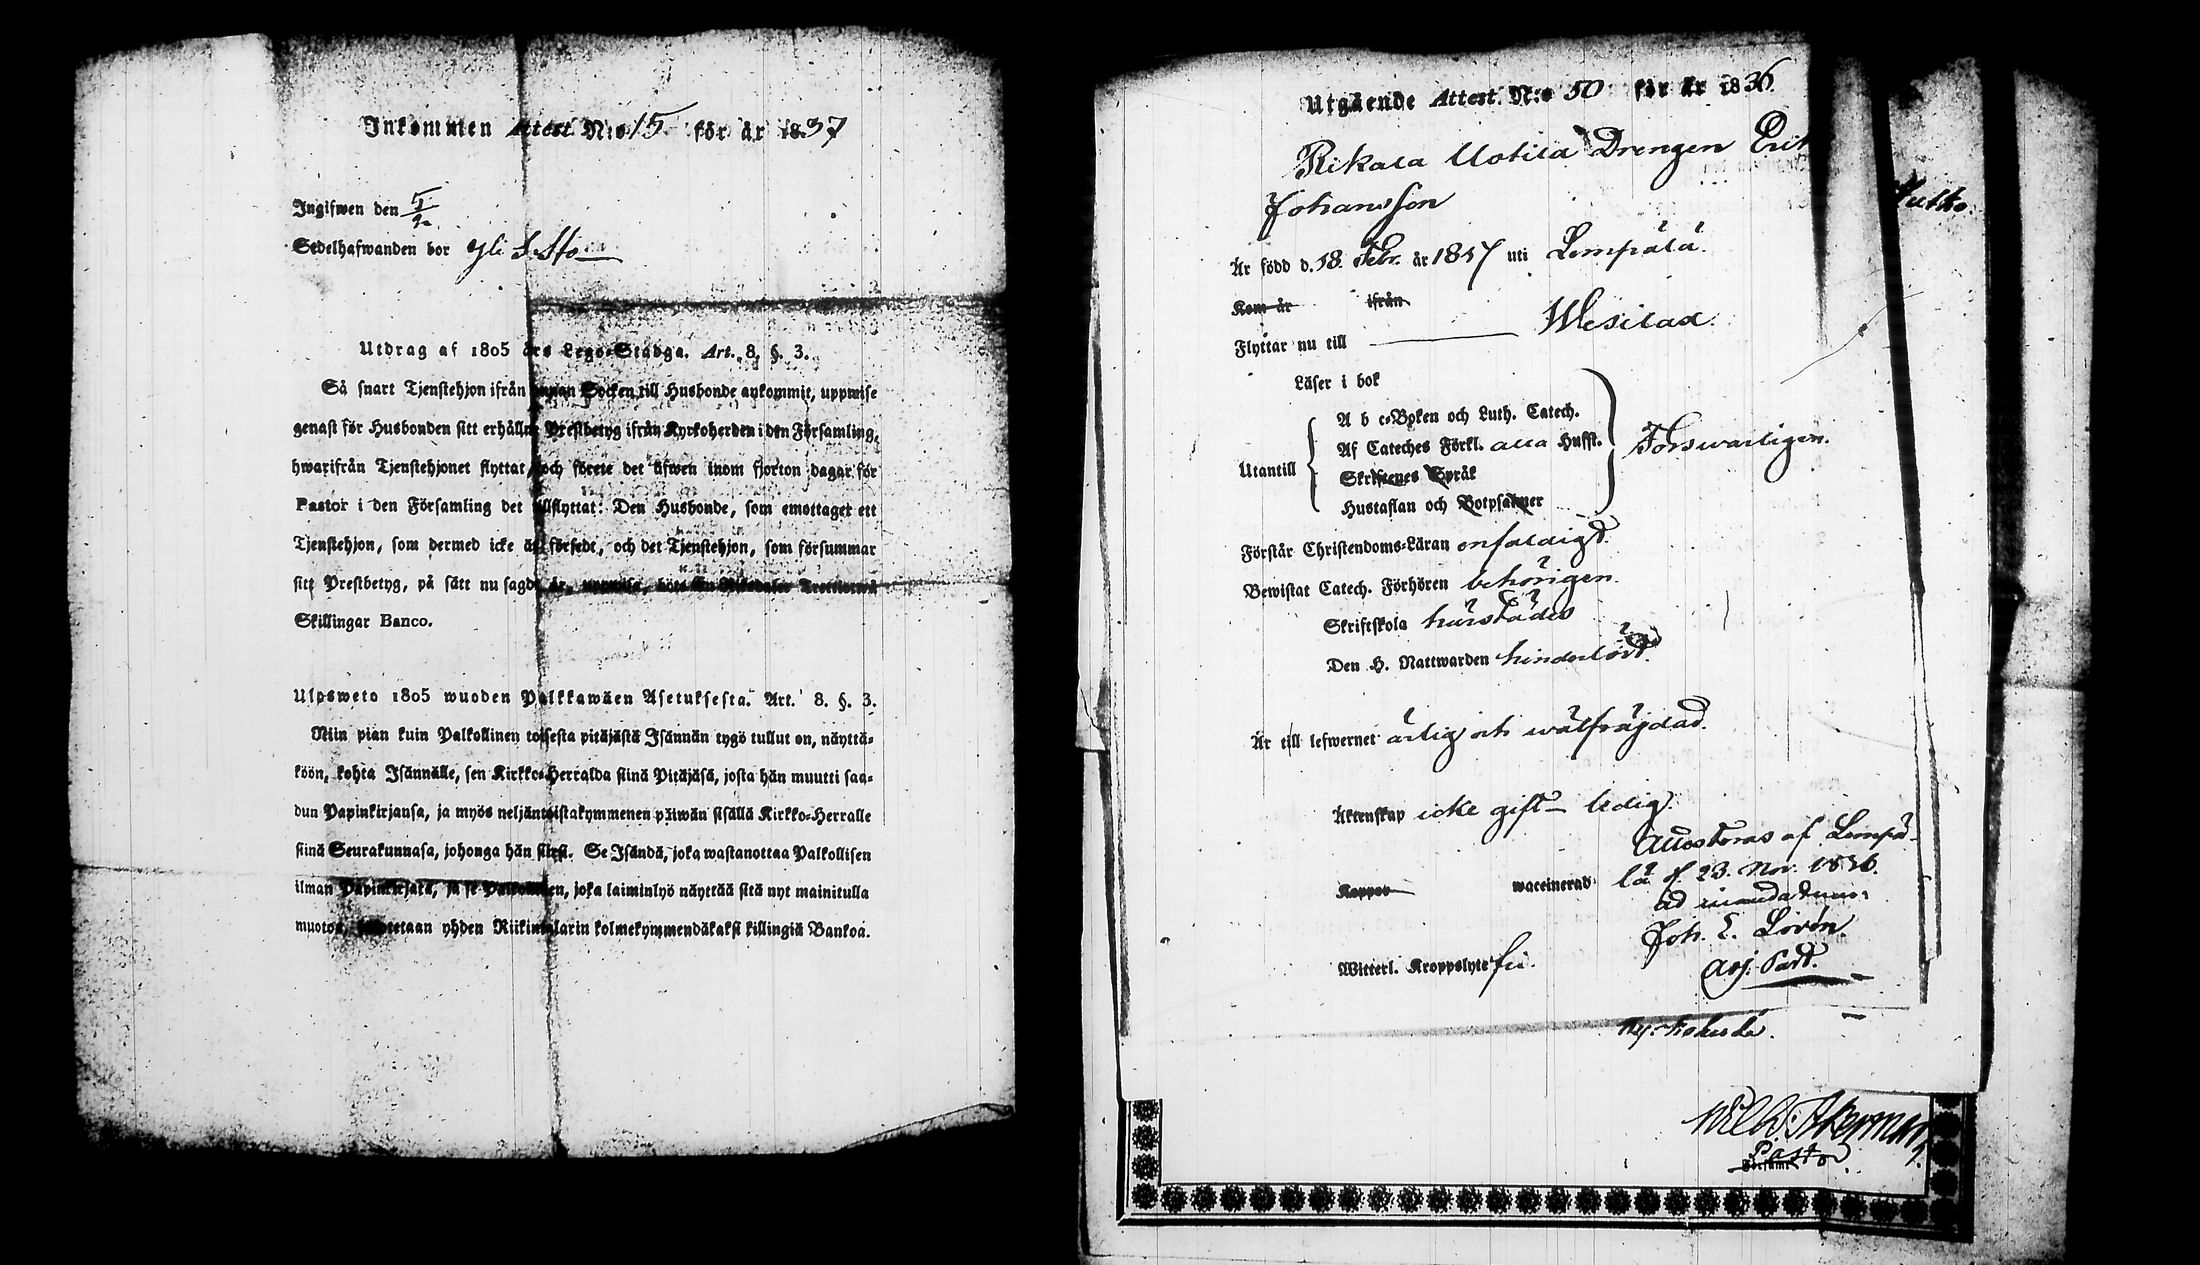 Inkommen Attest N:o 15 för år 1837
Ingifwen den 5/2
Sedelhafwanden bor
Utdrag af 1805 års Lego-Stadga. Art. 8. §. 3.
Så snart Tjenstehjon ifrån annan Socken till Husbonde ankommit, uppwise
genast för Husbonden sitt erhållne Prestbetyg ifrån Kyrkoherden i den Församling,
hwarifrån Tjenstehjonet flyttat, och förete det äfwen inom fjorton dagar för
Pastor i den Församling det tillflyttat: Den Husbonde, som emottager ett
Tjenstehjon, som dermed icke är försedt, och det Tjenstehjon, som försummar
sitt Prestbetyg, på sätt nu sagdt är, uppwisa, böte En Riksdaler Trettiotwå
Skillingar Banco.
Ulosweto 1805 wuoden Palkkawäen Asetuksesta. Art. 8. §. 3.
Niin pian kuin Palkollinen toisesta pitäjästä Isännän tygö tullut on, näyttä-
köön, kohta Isännälle, sen Kirkko-Herralda siinä Pitäjäsä, josta hän muutti saa-
dun Papinkirjansa, ja myös neljäntoistakymmenen päiwän sisällä Kirkko-Herralle
siinä Seurakunnasa, johonga hän siirsi. Se Isändä, joka wastanottaa Palkollisen
ilman Papinkirjata, ja se Palkollinen, joka laiminlyö näyttää sitä nyt mainitulla
muotoa, sakotetaan yhden Riikintalarin kolmekymmendäkaksi killingiä Bankoa.
Utgående Attest. N:o 50 för år 1836
Rikala Uotila Drengen Erik
Johansson
Är född d. 18. Febr. år 1817 uti Lempälä.
Kom år ifrån
Flyttar nu till Wesilax.
Läser i bok
A b c-Boken och Luth. Catech.
Af Cateches Förkl. alla Hufst.
Utantill
Skriftenes Språk
Hustaflan och Botpsalmer
Förswarligen.
Förstår Christendoms-Läran enfaldigt.
Bewistat Catech. Förhören behörigen.
Skriftskola härstädes
Den H. Nattwarden hinderlöst.
Är till lefwernet ärlig och wälfräjdad.
Äktenskap icke gift ledig.
Attesteras af Lempä-
lä d. 23. Nov. 1836.
Koppor waccinerad
ad mandatum:
Joh. E. Lovén.
Witterl. Kroppslyte fri.
Adj. Past.
Kyrkoherde.
Wilh: Åkerman
Pastor
Församl